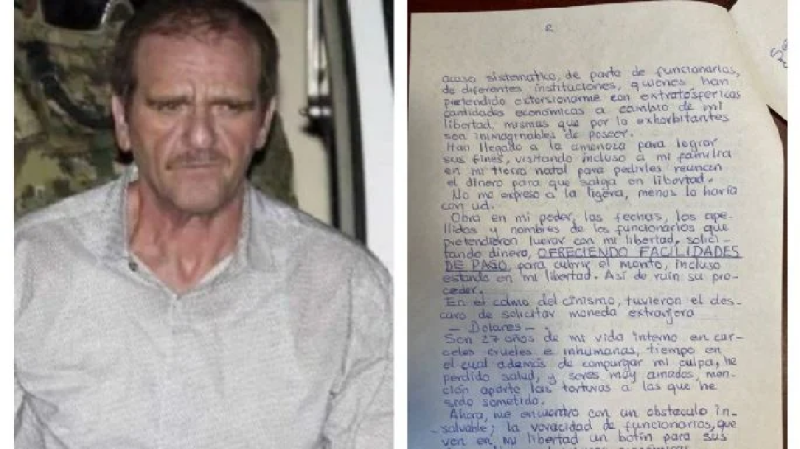 2
acoso sistematico, de parte de funcionarios,
de diferentes instituciones, quienes han
pretendido extorsionarme con extratosfericas
cantidades económicas a cambio de mi
libertad, mismas que por lo exhorbitantes
son inimaginables de poseer.
Han llegado a la amenaza para lograr
sus fines, visitando incluso a mi familia
en mi tierra natal para pedirles reunan
el dinero para que salga en libertad.
No me expreso a la ligera, menos lo haría
con ud.
Obra en mi poder, las fechas, los ape-
llidos y nombres de los funcionarios que
pretendieron lucrar con mi libertad, solici-
tando dinero, OFRECIENDO FACILIDADES
DE PAGO, para cubrir el monto, incluso
estando en mi libertad. Así de ruin su pro-
ceder.
En el colmo del cinismo, tuvieron el des-
caro de solicitar moneda extranjera
- Dolares -
Son 27 años de mi vida interno en car-
celes crueles e inhumanas, tiempo en
el cual además de compurgar mi culpa, he
perdido salud, y seres muy amados, men-
ción aparte las torturas a las que he
sido sometido.
Ahora, me encuentro con un obstaculo in-
salvable; la voracidad de funcionarios, que
ven en mi libertad un botín para sus